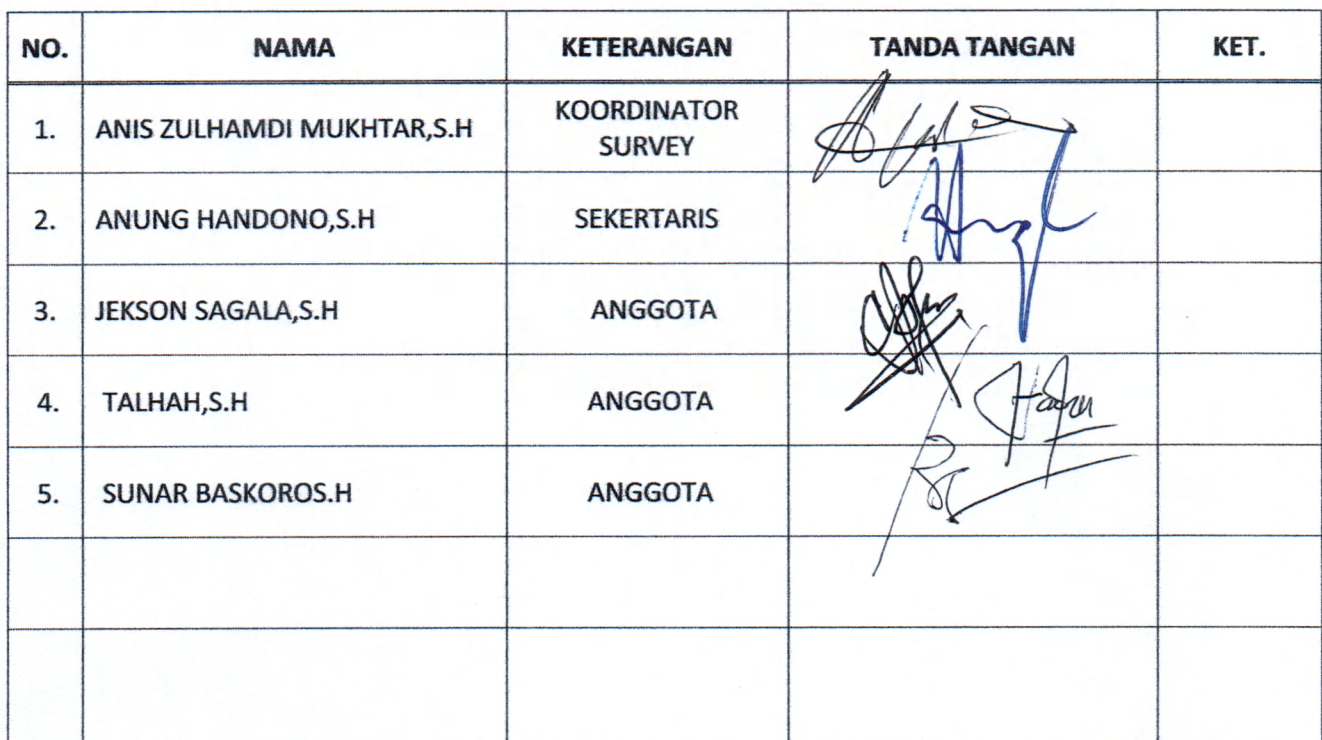 NO. NAMA KETERANGAN TANDA TANGAN KET.
1. ANIS ZULHAMDI MUKHTAR,S.H KOORDINATOR
SURVEY
2. ANUNG HANDONO,S.H SEKERTARIS
3. JEKSON SAGALA,S.H ANGGOTA
4. TALHAH,S.H ANGGOTA
5. SUNAR BASKOROS.H ANGGOTA